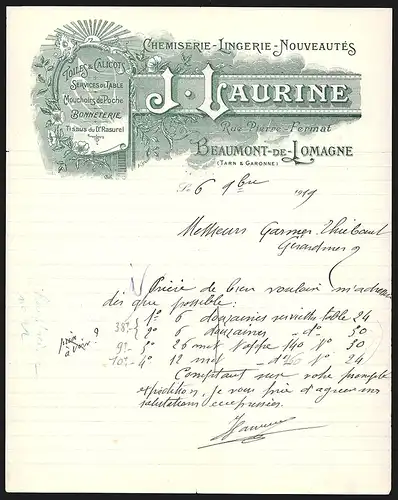 CHEMISERIE-LINGERIE-NOUVEAUTÉS
TOILES & CALICOTS
SERVICES DE TABLE
Mouchoirs de Poche
BONNETERIE
Tissus du Dr Rasurel
J. LAURINE
Rue Pierre-Fermat
BEAUMONT-DE-LOMAGNE
(TARN & GARONNE)
Le 6 9bre 1919
Messieurs Garnier-Thiebaut
Gérardmer
Prière de bien vouloir m'adresser
dès que possible:
1° 6 douzaines serviette table 24
38- 2° 6 douzaines - d° - 30
9- 3° 26 met Nappe 140 N° 30
10- 4° 12 met - d° N° 24
Comptant sur votre prompte
expédition, je vous prie d'agréer mes
salutations empressées.